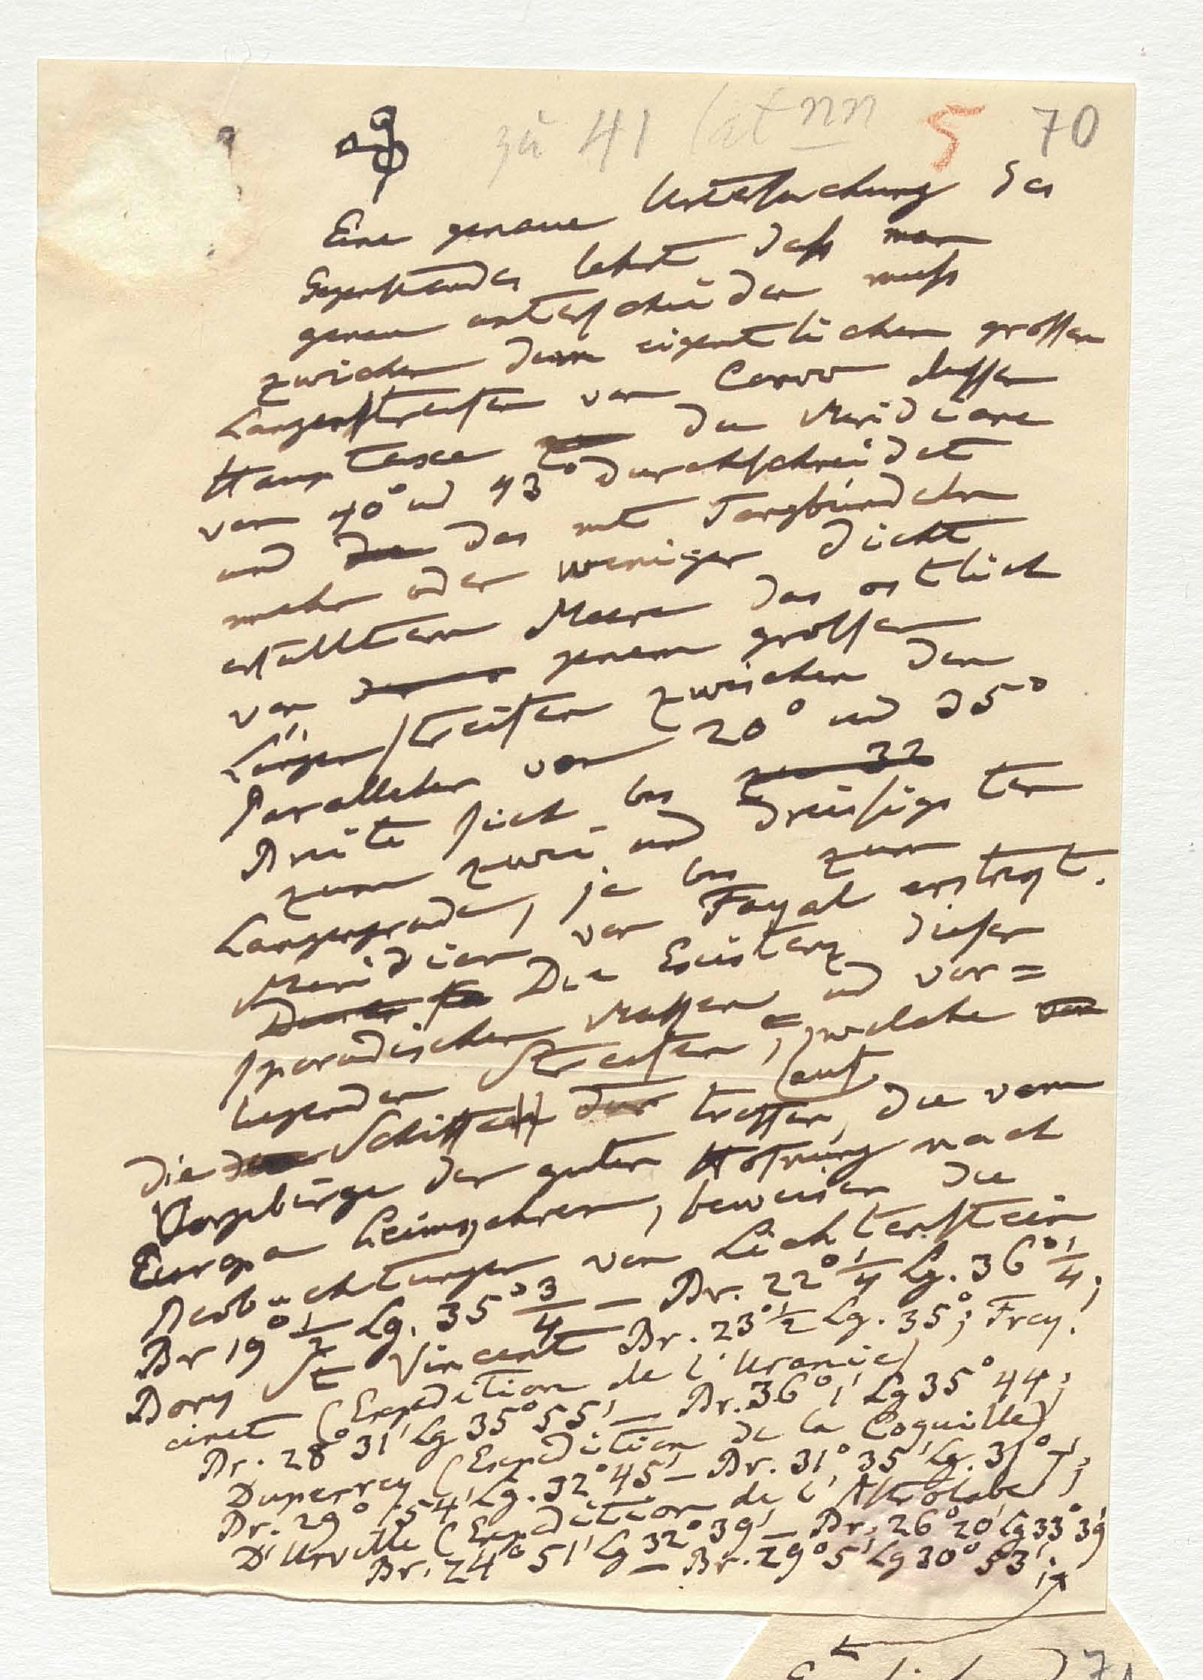 zu 41 5 70
Eine genaue Untersuchung des
Gegenstandes lehrt daß man
genau unterscheiden muß
zwischen dem eigentlichen großen
Längenstreifen von Corvo dessen
Hauptaxe die Meridiane
von 40° und 43° durchschneidet
und die das mit Tangbündeln
mehr oder weniger dicht
erfülltem Meere das ostlich
von jenem großen
Längenstreifen zwischen den
Parallelen von 20° und 35°
Breite sich bis zu 32
zum zwei und dreissigsten
Langengrade, ja bis zum
Meridian von Fayal erstrekt.
Die Existenz dieser
sporadischen Massen und vor=
liegenden Streifen, welche von
auf
die Schiffe treffen, die vom
Vorgebirge der guten Hofnung nach
Europa heimkehren, beweisen die
Beobachtungen von Lichtenstein
Br 19° 1/2 Lg. 35° 3/4 — Br. 22° 1/4 Lg. 36° 1/4;
Bory St Vincent Br. 23° 1/2 Lg. 35°; Frey!
cinet (Expedition de l'Uranie)
Br. 28° 31' Lg 35° 55' — Br. 36° 1' Lg 35° 44';
Duperrey (Expedition de la Coquille)
Br. 29° 54' Lg. 32° 45' — Br. 31° 35' Lg. 31°
D'Urville (Expedition de l'Astrolabe)
Br. 24° 51' Lg 32° 39' — Br. 26° 20' Lg 33° 39'
— Br. 29° 5' Lg 30° 53';